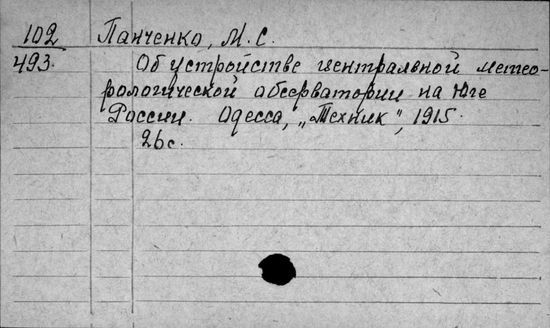 102 Панченко, М. С.
493. Об устройстве центральной метео-
рологической абсерватории на Юге
России. Одесса, „Техник", 1915.
26с.